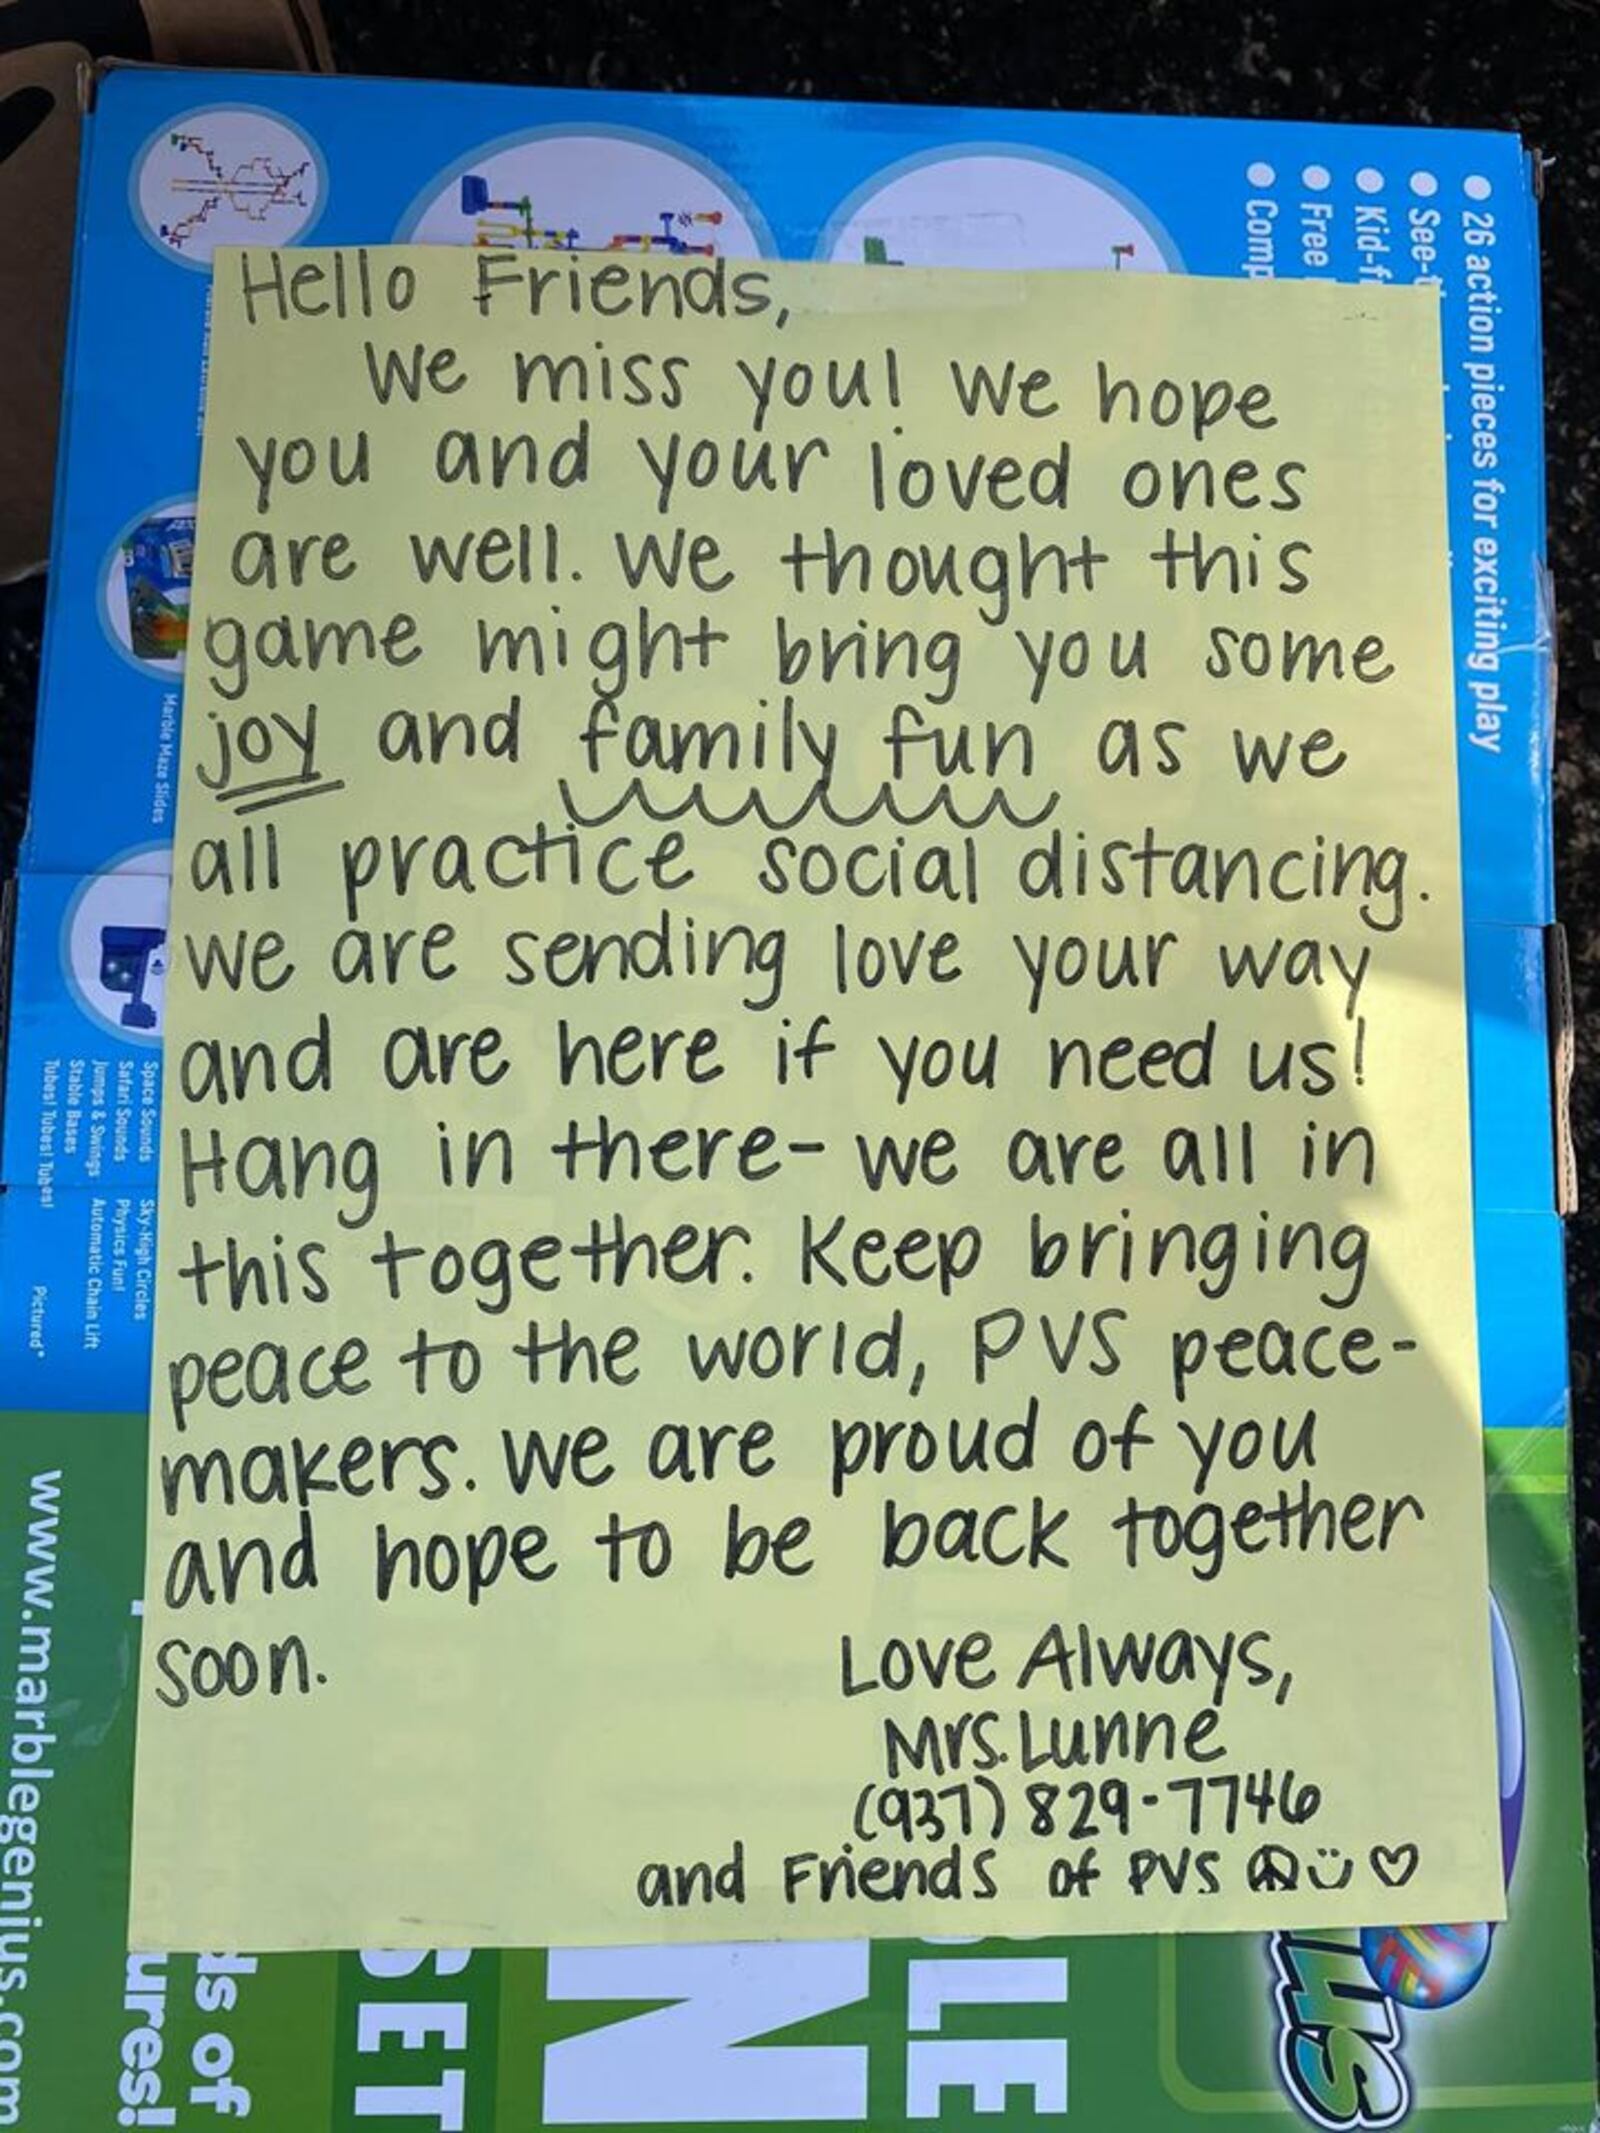 Hello Friends,
We miss you! We hope
you and your loved ones
are well. We thought this
game might bring you some
joy and family fun as we
all practice social distancing.
We are sending love your way
and are here if you need us!
Hang in there- we are all in
this together. Keep bringing
peace to the world, PVS peace-
makers. We are proud of you
and hope to be back together
soon.
Love Always,
Mrs. Lunne
(937) 829-7746
and Friends of PVS
● 26 action pieces for exciting play
● See-
● Kid-f
● Free
● Comp
Marble Maze Slides
Space Sounds
Safari Sounds
Jumps & Swings
Stable Bases
Tubes! Tubes! Tubes!
Sky-High Circles
Physics Fun!
Automatic Chain Lift
Pictured*
www.marblegenius.com
ds of
ures!
SET
N
LE
us